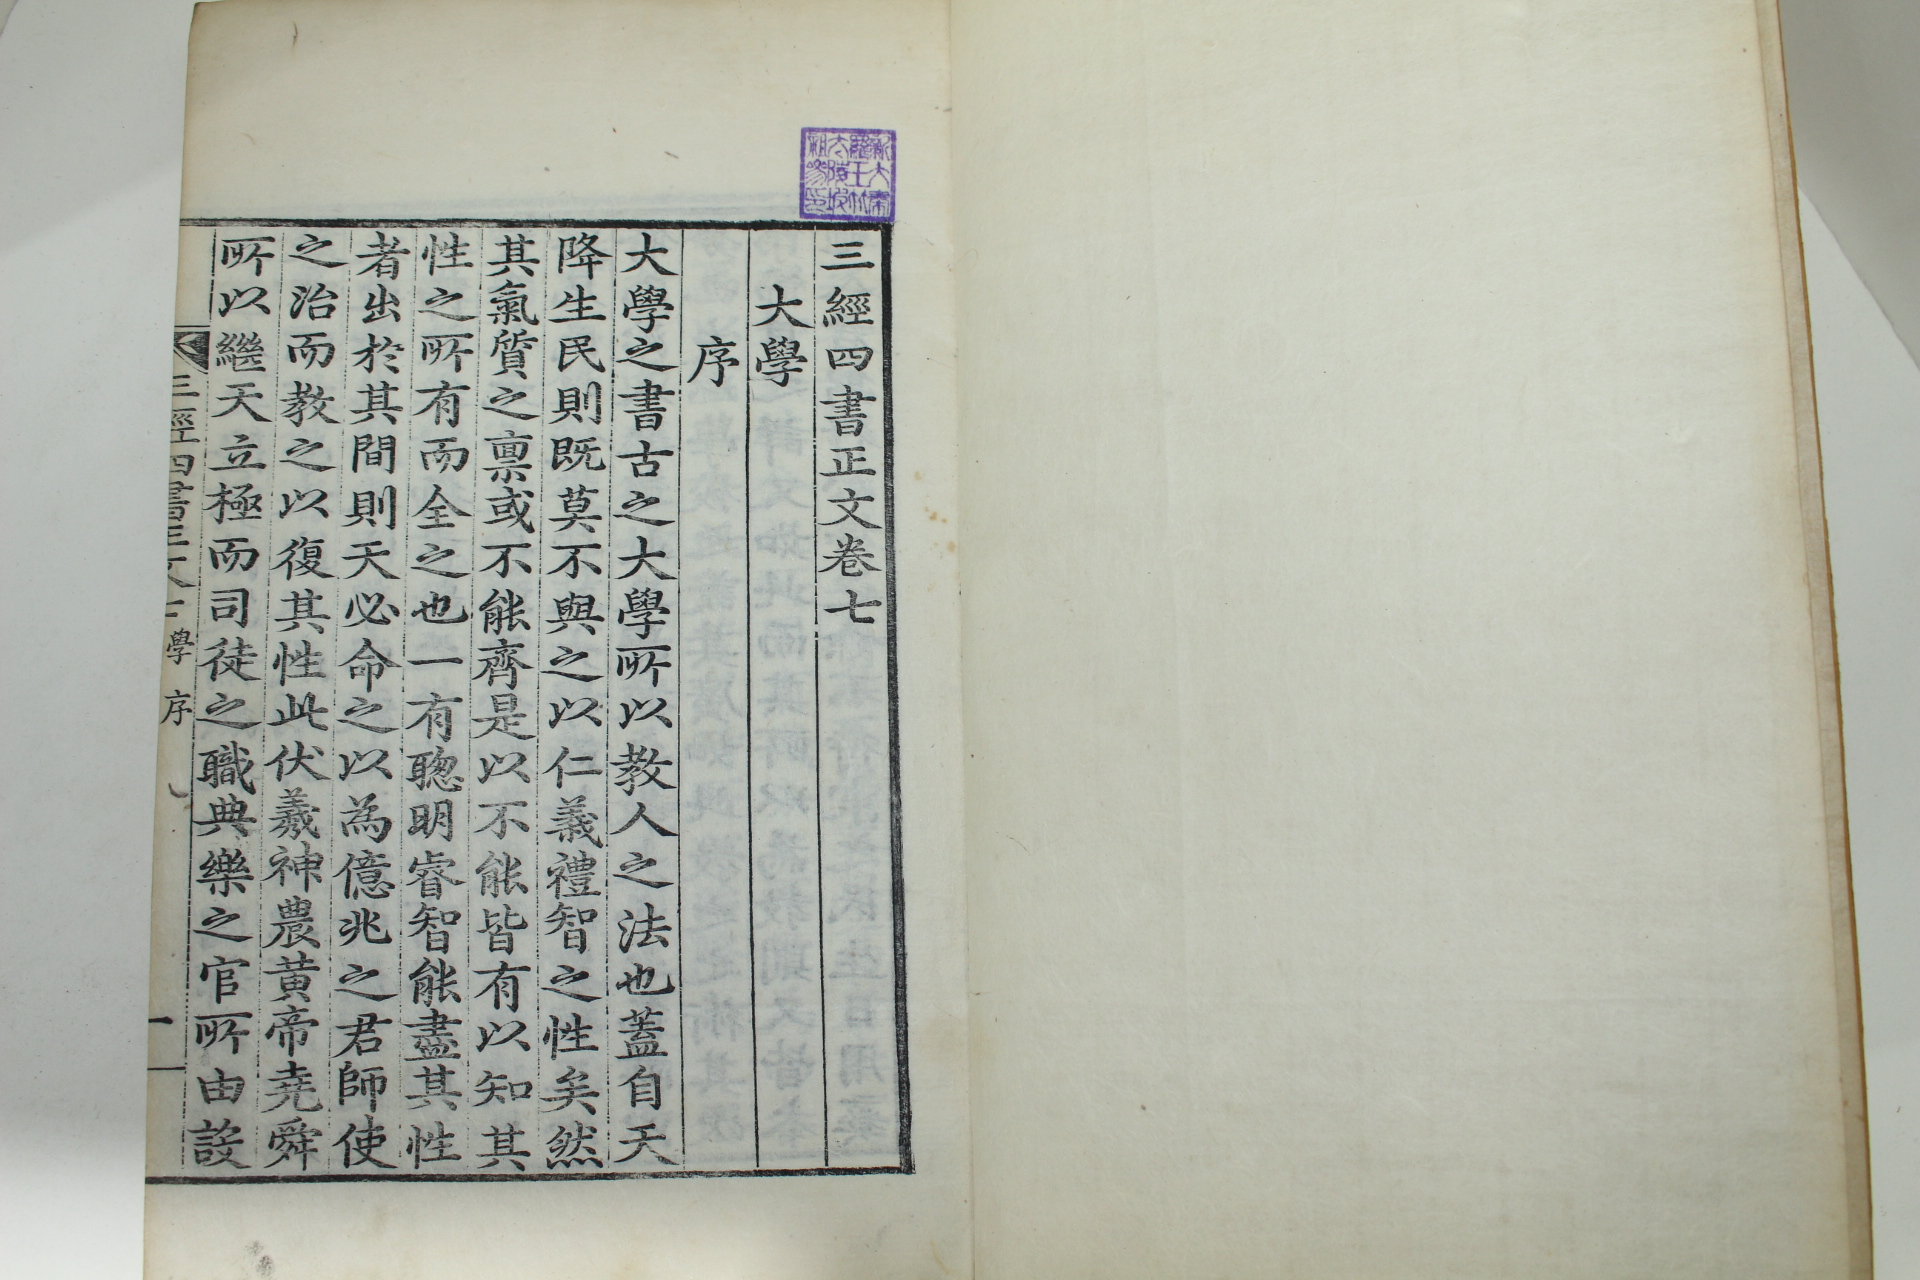 三經四書正文卷七
大學
序
大學之書古之大學所以教人之法也蓋自天
降生民則既莫不與之以仁義禮智之性矣然
其氣質之禀或不能齊是以不能皆有以知其
性之所有而全之也一有聰明睿智能盡其性
者出於其間則天必命之以為億兆之君師使
之治而教之以復其性此伏羲神農黄帝堯舜
所以繼天立極而司徒之職典樂之官所由設
三經四書正文 學 序 一